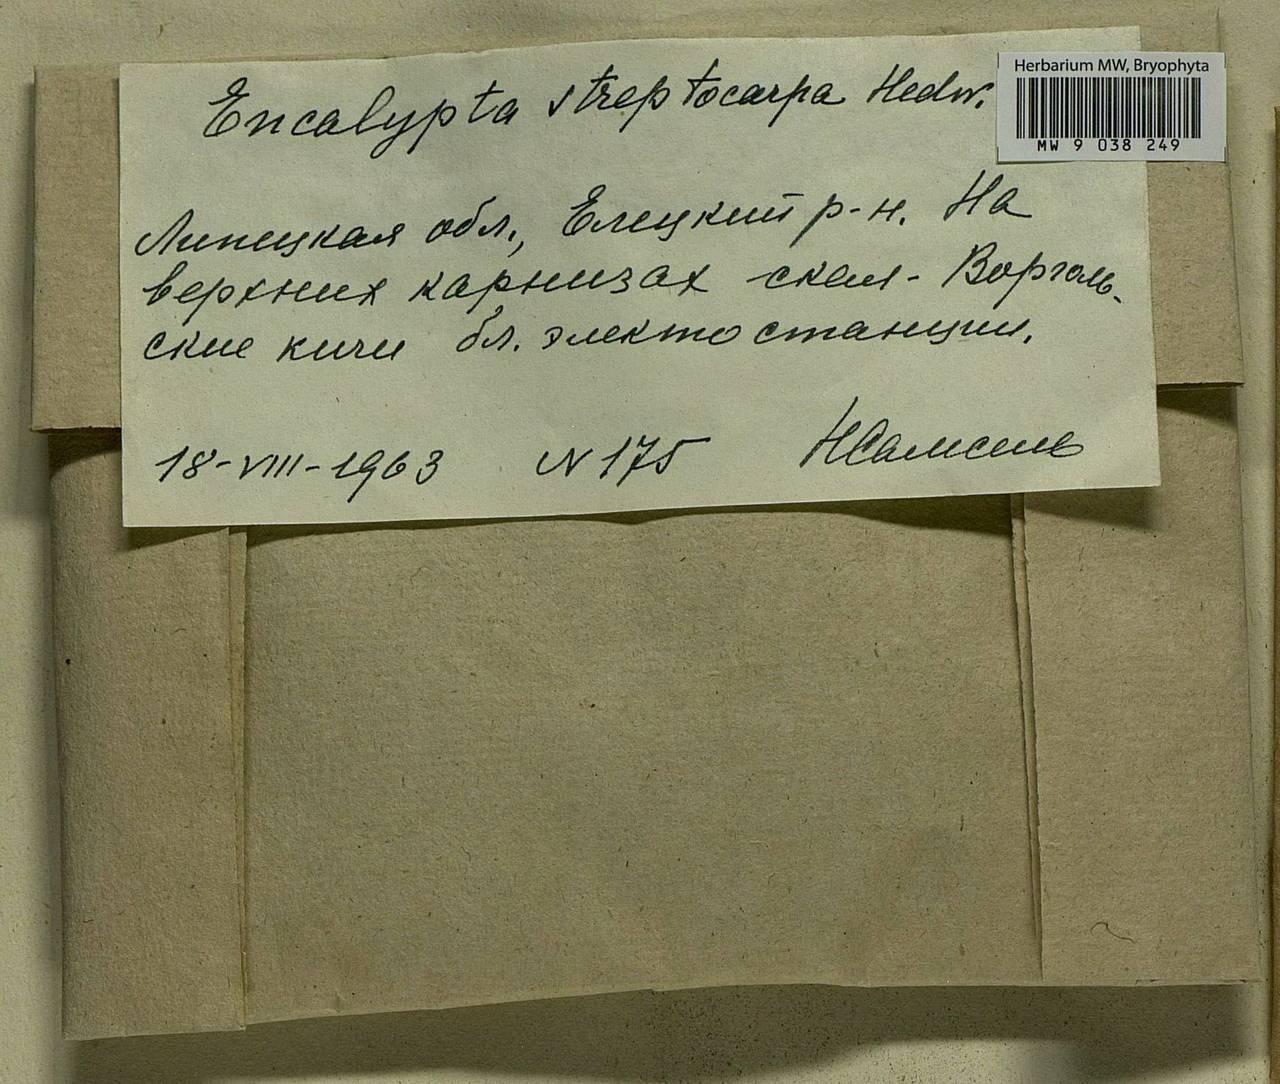 Herbarium MW, Bryophyta
MW 9 038 249
Encalypta streptocarpa Hedw.
Липецкая обл., Елецкий р-н. На
верхних карнизах скал - Воргольские
ские кичи бл. электостанции.
18-VIII-1963 N 175 НСамсель